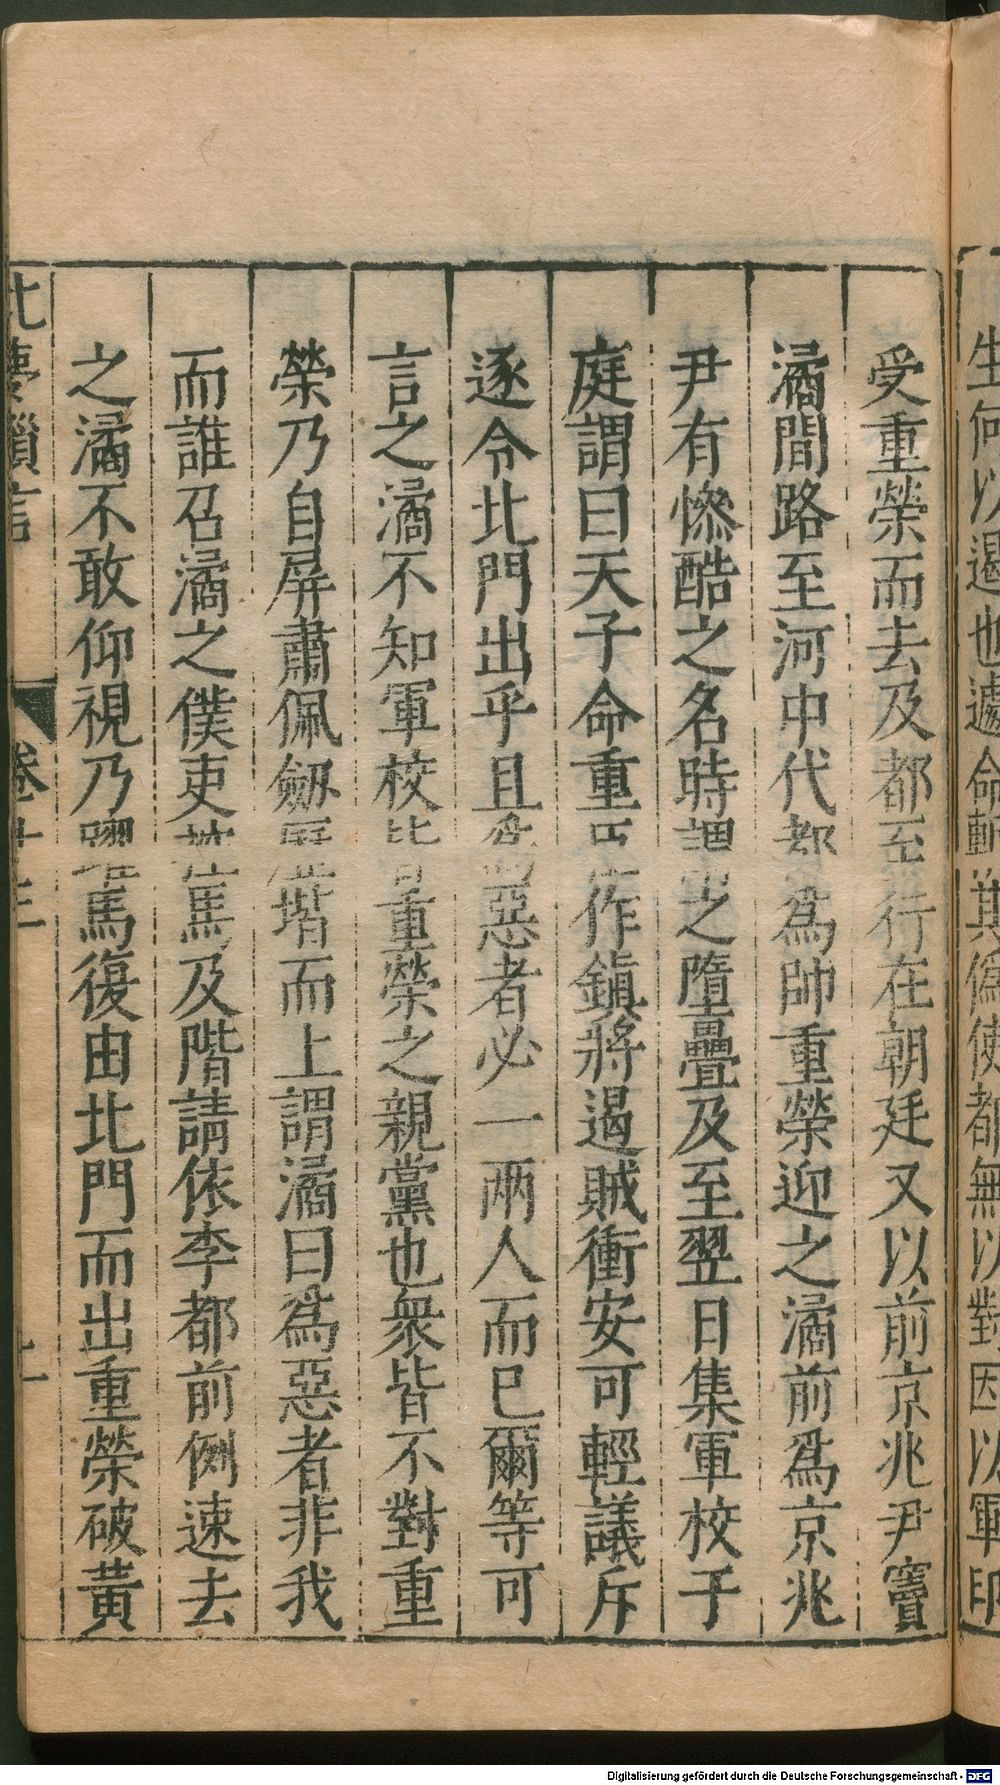 生何以遏也遽命斬其偽使都無以對因以軍印
受重榮而去及都至行在朝廷又以前京兆尹竇
潏間路至河中代都為帥重榮迎之潏前為京兆
尹有慘酷之名時謂之墮疊及至翌日集軍校于
庭謂曰天子命重臣作鎮將遏賊衝安可輕議斥
逐令北門出乎且為惡者必一兩人而已爾等可
言之潏不知軍校皆重榮之親黨也衆皆不對重
榮乃自屏肅佩劔歷堦而上謂潏曰為惡者非我
而誰召潏之僕吏控馬及階請依李都前例速去
之潏不敢仰視乃躍馬復由北門而出重榮破黃
北夢瑣言 卷十三 十一
Digitalisierung gefördert durch die Deutsche Forschungsgemeinschaft - DFG